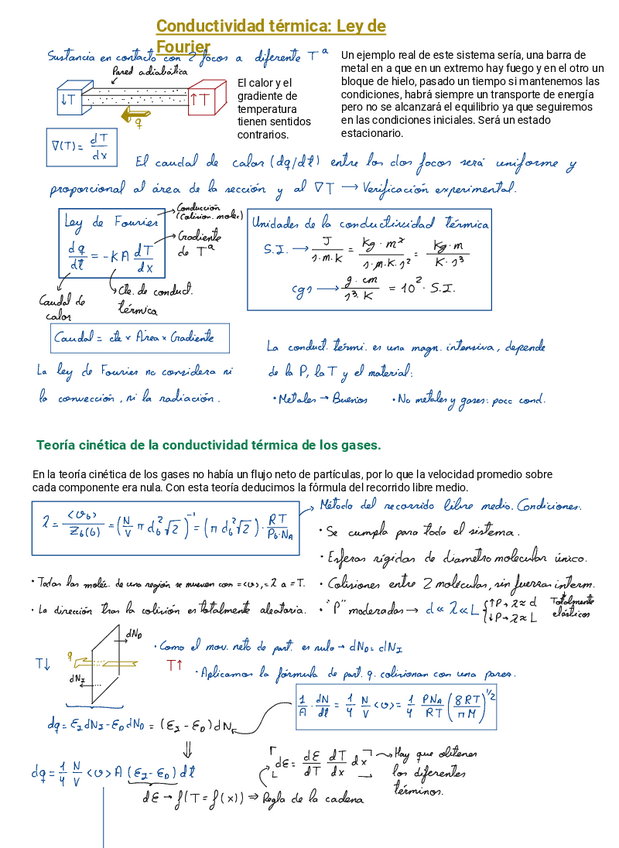 Conductividad térmica: Ley de
Fourier
Sustancia en contacto con 2 focos a diferente Tª
Pared adiabática
↓T
↑T
q
El calor y el
gradiente de
temperatura
tienen sentidos
contrarios.
Un ejemplo real de este sistema sería, una barra de
metal en a que en un extremo hay fuego y en el otro un
bloque de hielo, pasado un tiempo si mantenemos las
condiciones, habrá siempre un transporte de energía
pero no se alcanzará el equilibrio ya que seguiremos
en las condiciones iniciales. Será un estado
estacionario.
∇(T) = dT/dx
El caudal de calor (dq/dt) entre los dos focos será uniforme y
proporcional al área de la sección y al ∇T → Verificación experimental.
Ley de Fourier
dq/dt = -KA dT/dx
Conducción
(Colision. molec)
Gradiente
de Tª
Cte. de conduct.
térmica
Caudal de
calor
Unidades de la conductividad térmica
S.I. → J/s·m·K = Kg·m²/s·m·K·s² = Kg·m/K·s³
cgs → g·cm/s³·K = 10²·S.I.
Caudal = cte × Área × Gradiente
La conduct. térmi. es una magn. intensiva, depende
de la P, la T y el material:
• Metales → Buenos • No metales y gases: poca cond.
La ley de Fourier no considera ni
la convección, ni la radiación.
Teoría cinética de la conductividad térmica de los gases.
En la teoría cinética de los gases no había un flujo neto de partículas, por lo que la velocidad promedio sobre
cada componente era nula. Con esta teoría deducimos la fórmula del recorrido libre medio.
λ = <v_b>/Z_b(b) = (N/V π d_b² √2)⁻¹ = (π d_b² √2)⁻¹ · RT/P_b·N_A
Método del recorrido libre medio. Condiciones.
• Se cumpla para todo el sistema.
• Esferas rígidas de diametro molecular único.
• Todas las moléc. de una región se mueven con =<v>, = λ a =T.
• Colisiones entre 2 moléculas, sin fuerzas interm.
• La dirección tras la colisión es totalmente aleatoria.
• "P" moderadas → d « λ « L {↑P → λ≈d
↓P → λ≈L
Totalmente
elásticos
dN_D
T↓
q
T↑
dN_I
• Como el mov. neto de part. es nulo → dN_D = dN_I
• Aplicamos la fórmula de part. q. colisionan con una pared.
1/A · dN/dt = 1/4 N/V <v> = 1/4 PN_A/RT (8RT/πM)^1/2
dq = ε_I dN_I - ε_D dN_D = (ε_I - ε_D) dN
⇓
dq = 1/4 N/V <v> A (ε_I - ε_D) dt
[dε = dε/dT dT/dx dx]
→ Hay que obtener
los diferentes
términos.
dε → f(T = f(x)) ⇒ Regla de la cadena